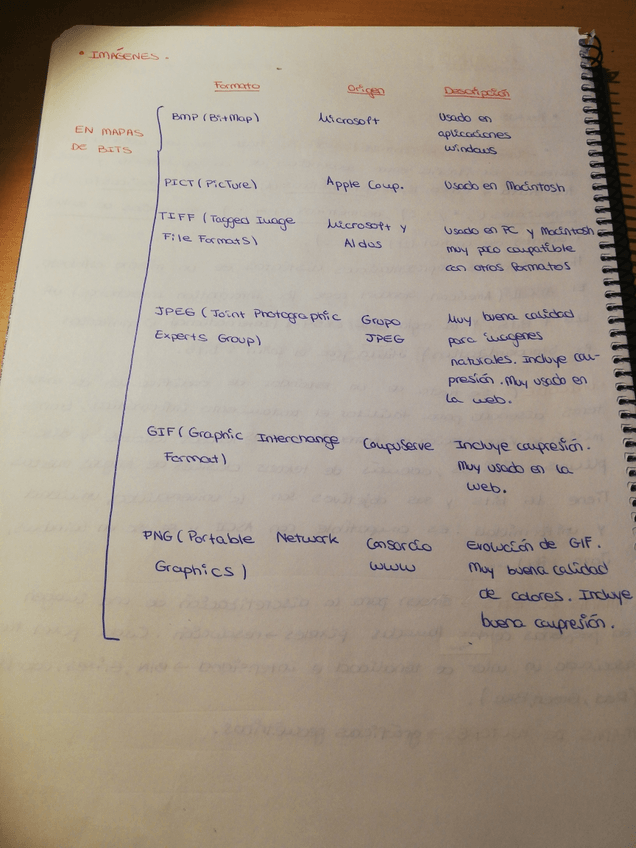 • IMÁGENES.
Formato Origen Descripción
EN MAPAS
DE BITS
BMP (BitMap) Microsoft Usado en
aplicaciones
Windows
PICT (PicTure) Apple Comp. Usado en Macintosh
TIFF (Tagged Image Microsoft y Usado en PC y Macintosh
File Formats) Aldos muy poco compatible
con otros formatos
JPEG (Joint Photographic Grupo Muy buena calidad
Experts Group) JPEG para imágenes
naturales. Incluye com-
presión. Muy usado en
la web.
GIF (Graphic Interchange CompuServe Incluye compresión.
Format) Muy usado en la
web.
PNG (Portable Network Consorcio Evolución de GIF.
Graphics) WWW Muy buena calidad
de colores. Incluye
buena compresión.